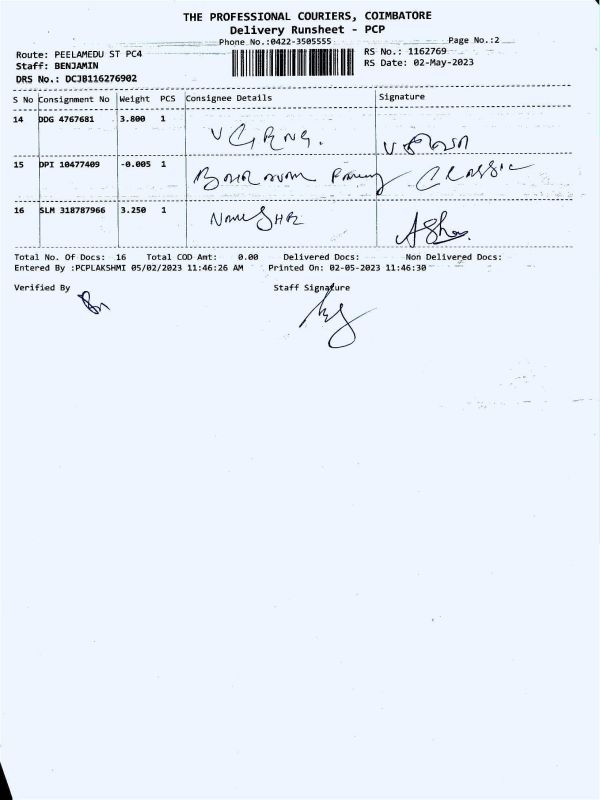 THE PROFESSIONAL COURIERS, COIMBATORE
Delivery Runsheet - PCP
Phone No.:0422-3505555 Page No.:2
Route: PEELAMEDU ST PC4 RS No.: 1162769
Staff: BENJAMIN RS Date: 02-May-2023
DRS No.: DCJB116276902
S No Consignment No Weight PCS Consignee Details Signature
14 DDG 4767681 3.800 1
15 DPI 10477409 -0.005 1 Classic
16 SLM 318787966 3.250 1
Total No. Of Docs: 16 Total COD Amt: 0.00 Delivered Docs: Non Delivered Docs:
Entered By :PCPLAKSHMI 05/02/2023 11:46:26 AM Printed On: 02-05-2023 11:46:30
Verified By Staff Signature